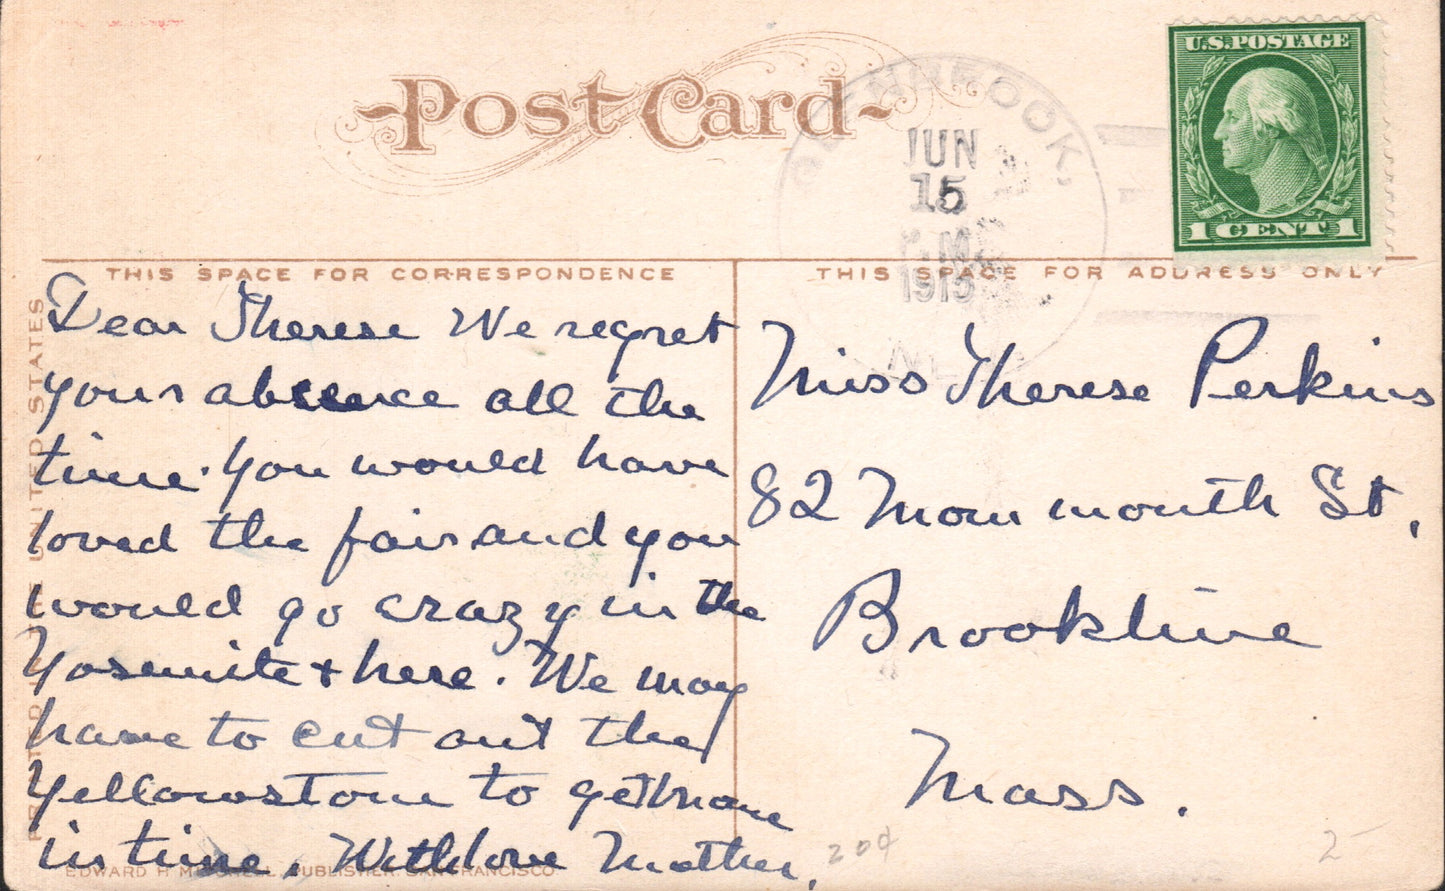 Post Card
GLENBROOK,
JUN
15
M
1915
U.S. POSTAGE
1 CENT 1
THIS SPACE FOR CORRESPONDENCE
THIS SPACE FOR ADDRESS ONLY
Dear Therese We regret
your absence all the
time. You would have
loved the fair and you
would go crazy in the
Yosemite + here. We may
have to cut out the
Yellowstone to get home
in time. With love Mother.
Miss Therese Perkins
82 Monmouth St.,
Brookline
Mass.
20¢
2-
UNITED STATES
EDWARD H. MITCHELL, PUBLISHER, SAN FRANCISCO